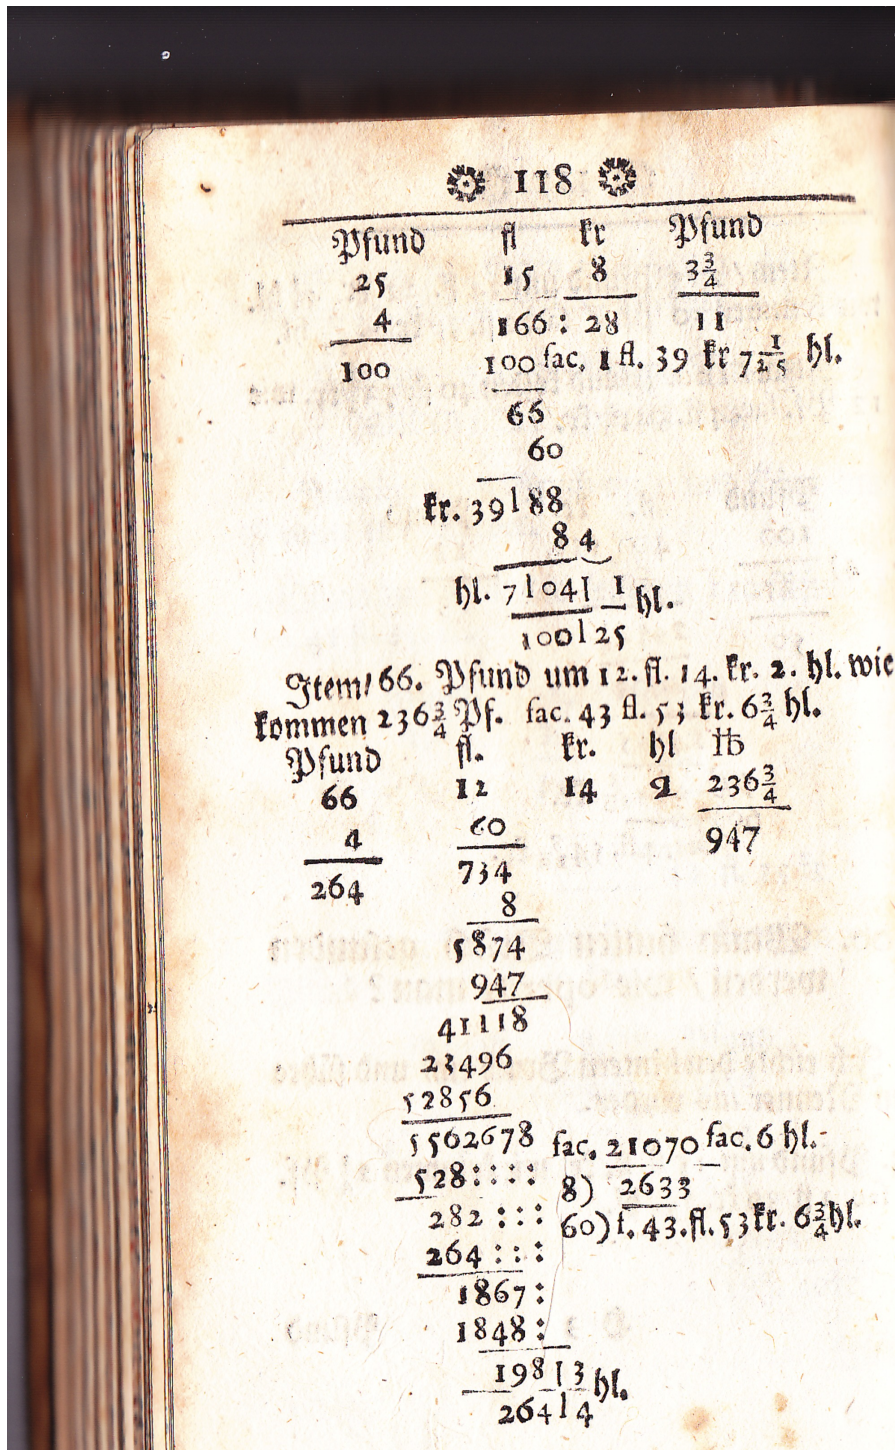 118
Pfund fl kr Pfund
25 15 8 3 3/4
4 166 : 28 11
100 100 fac. 1 fl. 39 kr 7 1/25 hl.
66
60
kr. 39 | 88
84
hl. 7 | 04 | 1 hl.
100 | 25
Item/ 66. Pfund um 12. fl. 14. kr. 2. hl. wie
kommen 236 3/4 Pf. fac. 43 fl. 53 kr. 6 3/4 hl.
Pfund fl. kr. hl ℔
66 12 14 2 236 3/4
4 60 947
264 734
8
5874
947
41118
23496
52856
5562678 fac. 21070 fac. 6 hl.
528 : : : : 8) 2633
282 : : : 60) f. 43. fl. 53 kr. 6 3/4 hl.
264 : : :
1867 :
1848 :
198 | 3 hl.
264 | 4